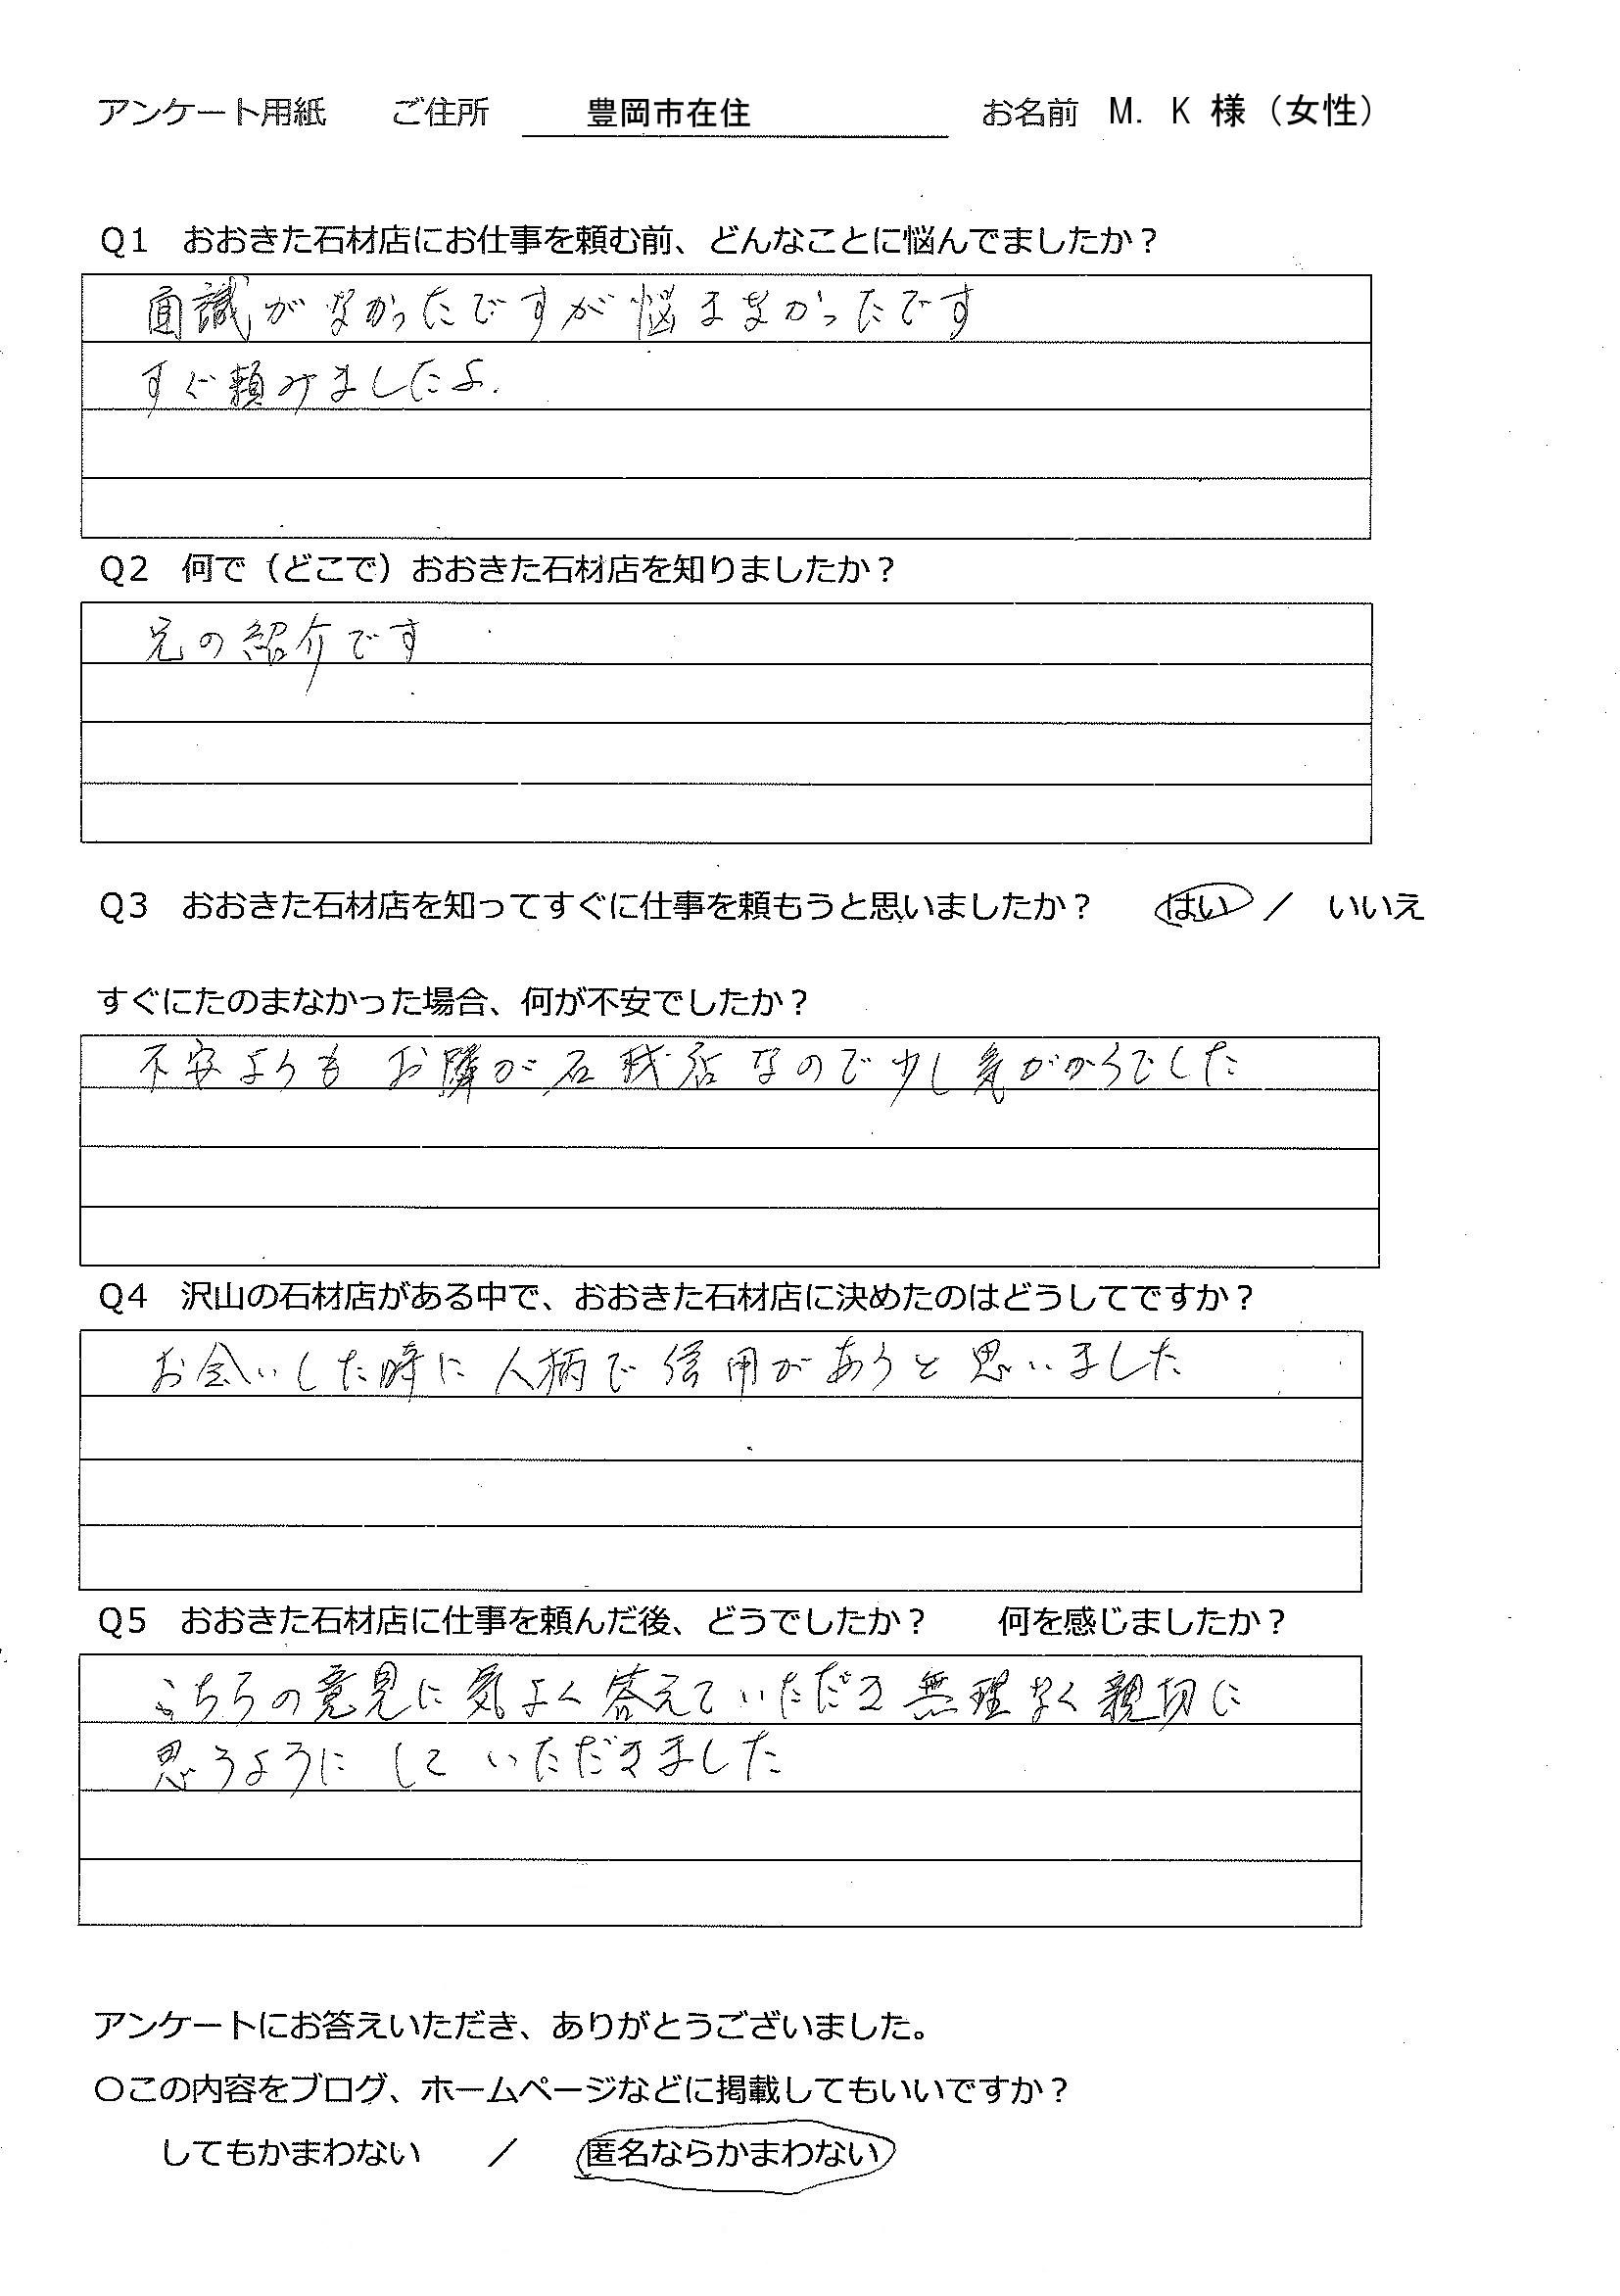 アンケート用紙　ご住所　豊岡市在住　お名前　M．K 様（女性）
Q1　おおきた石材店にお仕事を頼む前、どんなことに悩んでましたか？
面識がなかったですが悩まなかったです
すぐ頼みましたよ.
Q2　何で（どこで）おおきた石材店を知りましたか？
兄の紹介です
Q3　おおきた石材店を知ってすぐに仕事を頼もうと思いましたか？　はい ／ いいえ
すぐにたのまなかった場合、何が不安でしたか？
不安よりも お隣が石材店なので少し気がかりでした
Q4　沢山の石材店がある中で、おおきた石材店に決めたのはどうしてですか？
お会いした時に人柄で信用があると思いました
Q5　おおきた石材店に仕事を頼んだ後、どうでしたか？　何を感じましたか？
こちらの意見に気よく答えていただき無理なく親切に
思うように していただきました
アンケートにお答えいただき、ありがとうございました。
〇この内容をブログ、ホームページなどに掲載してもいいですか？
してもかまわない　／　匿名ならかまわない